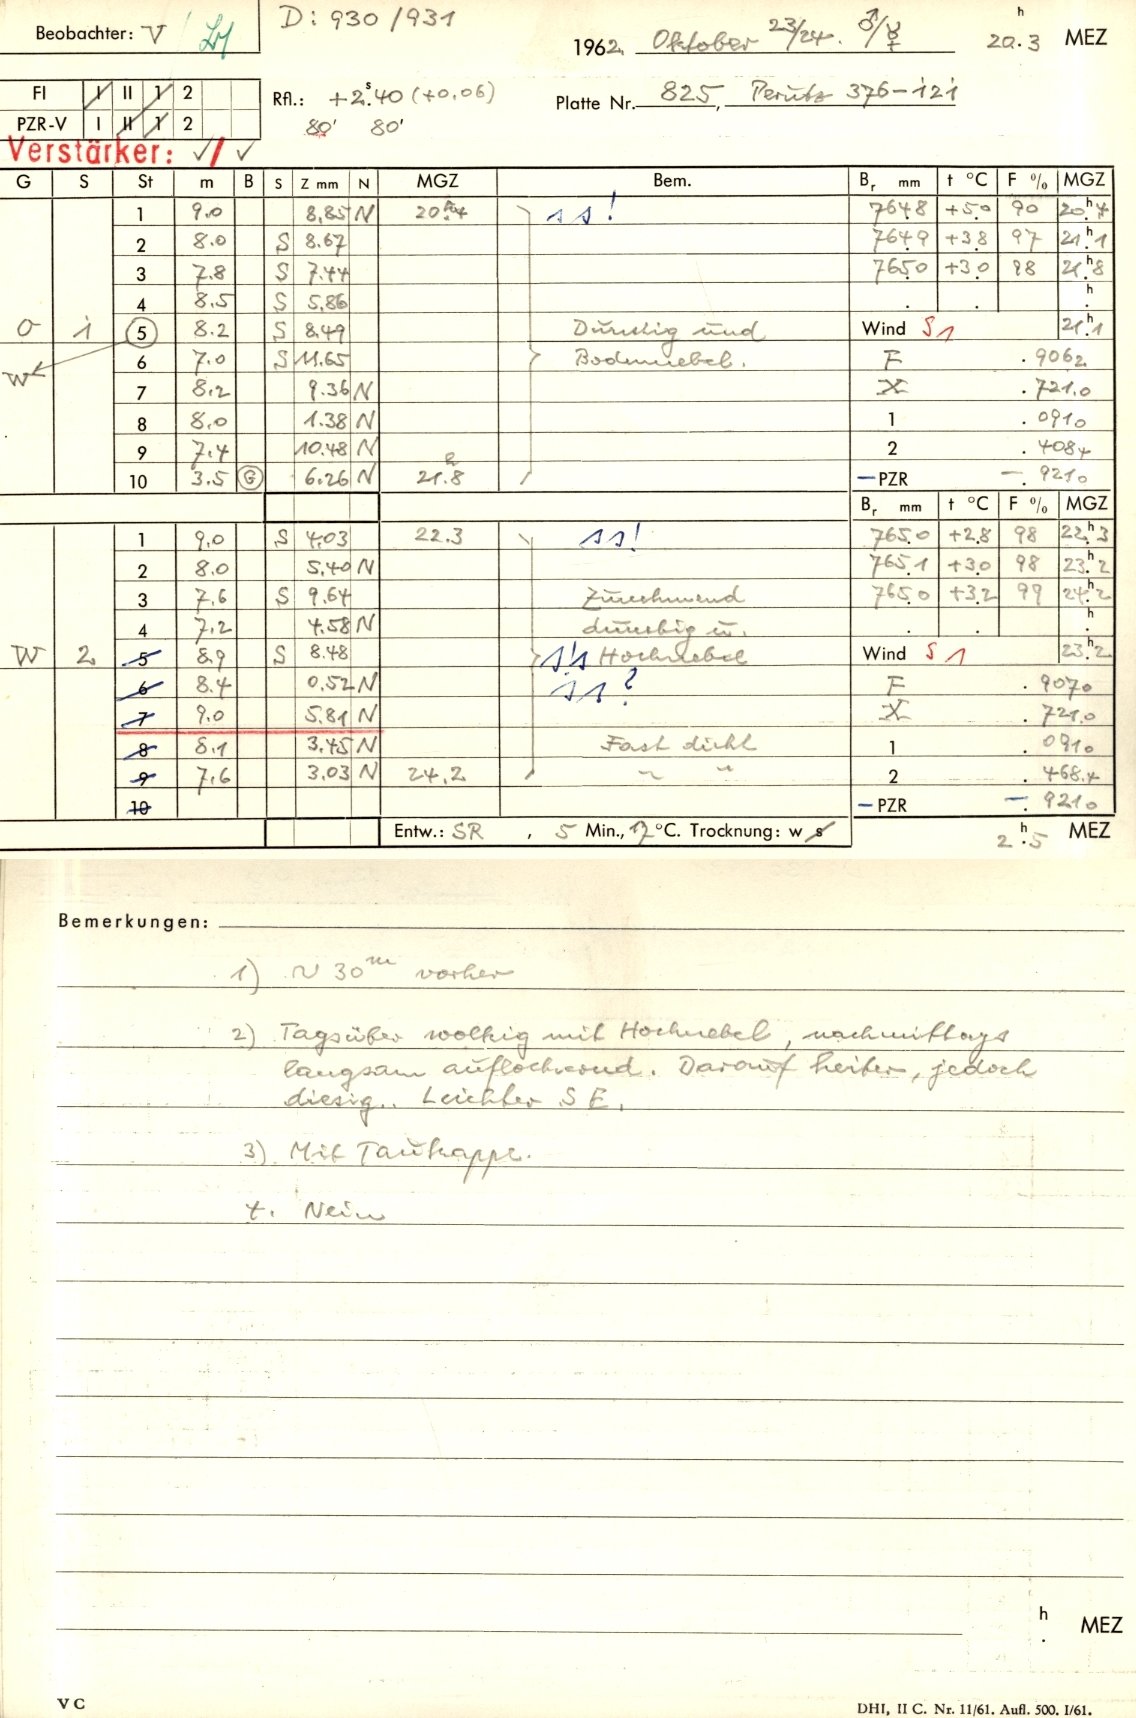 D: 930/931
Beobachter: V
1962 Oktober 23/24. ♂/☿ 20.3 h MEZ
FI I II 1 2
Rfl.: +2.40 s (+0,06)
Platte Nr. 825, Perutz 376-121
PZR-V I II 1 2
80' 80'
Verstärker: ✓/✓
G S St m B S Z mm N MGZ Bem. Br mm t °C F % MGZ
1 9.0 8,85 N 20.4 h ss! 764.8 +5.0 90 20.4 h
2 8.0 S 8.67 764.9 +3.8 97 21.1 h
3 7.8 S 7.44 765.0 +3.0 98 21.8 h
4 8.5 S 5,86 . . h .
O 1 5 8.2 S 8.49 Dunstig und Wind S 1 21.1 h
W 6 7.0 S 11.65 Bodennebel. F . 9062
7 8.2 9.36 N . 7210
8 8.0 1.38 N 1 . 0910
9 7.4 10.48 N 2 . 4084
10 3.5 G 6.26 N 21.8 h —PZR — . 9210
Br mm t °C F % MGZ
1 9.0 S 4,03 22.3 ss! 765.0 +2.8 98 22.3 h
2 8.0 5,40 N 765.1 +3.0 98 23.2 h
3 7.6 S 9.64 Zunehmend 765.0 +3.2 99 24.2 h
4 7.2 4.58 N dunstig u. . . h .
W 2 5 8.9 S 8.48 s's Hochnebel Wind S 1 23.2 h
6 8.4 0.52 N ss? F . 9070
7 9.0 5.81 N . 7210
8 8.1 3.45 N Fast dicht 1 . 0910
9 7.6 3.03 N 24.2 " " 2 . 4684
10 —PZR — . 9210
Entw.: SR , 5 Min., 17 °C. Trocknung: w s 2.5 h MEZ
Bemerkungen:
1) ~ 30 m vorher
2) Tagsüber wolkig mit Hochnebel, nachmittags
langsam auflockernd. Darauf heiter, jedoch
diesig. Leichter SE.
3) Mit Taukappe.
4. Nein
h
. MEZ
V C
DHI, II C. Nr. 11/61. Aufl. 500. I/61.